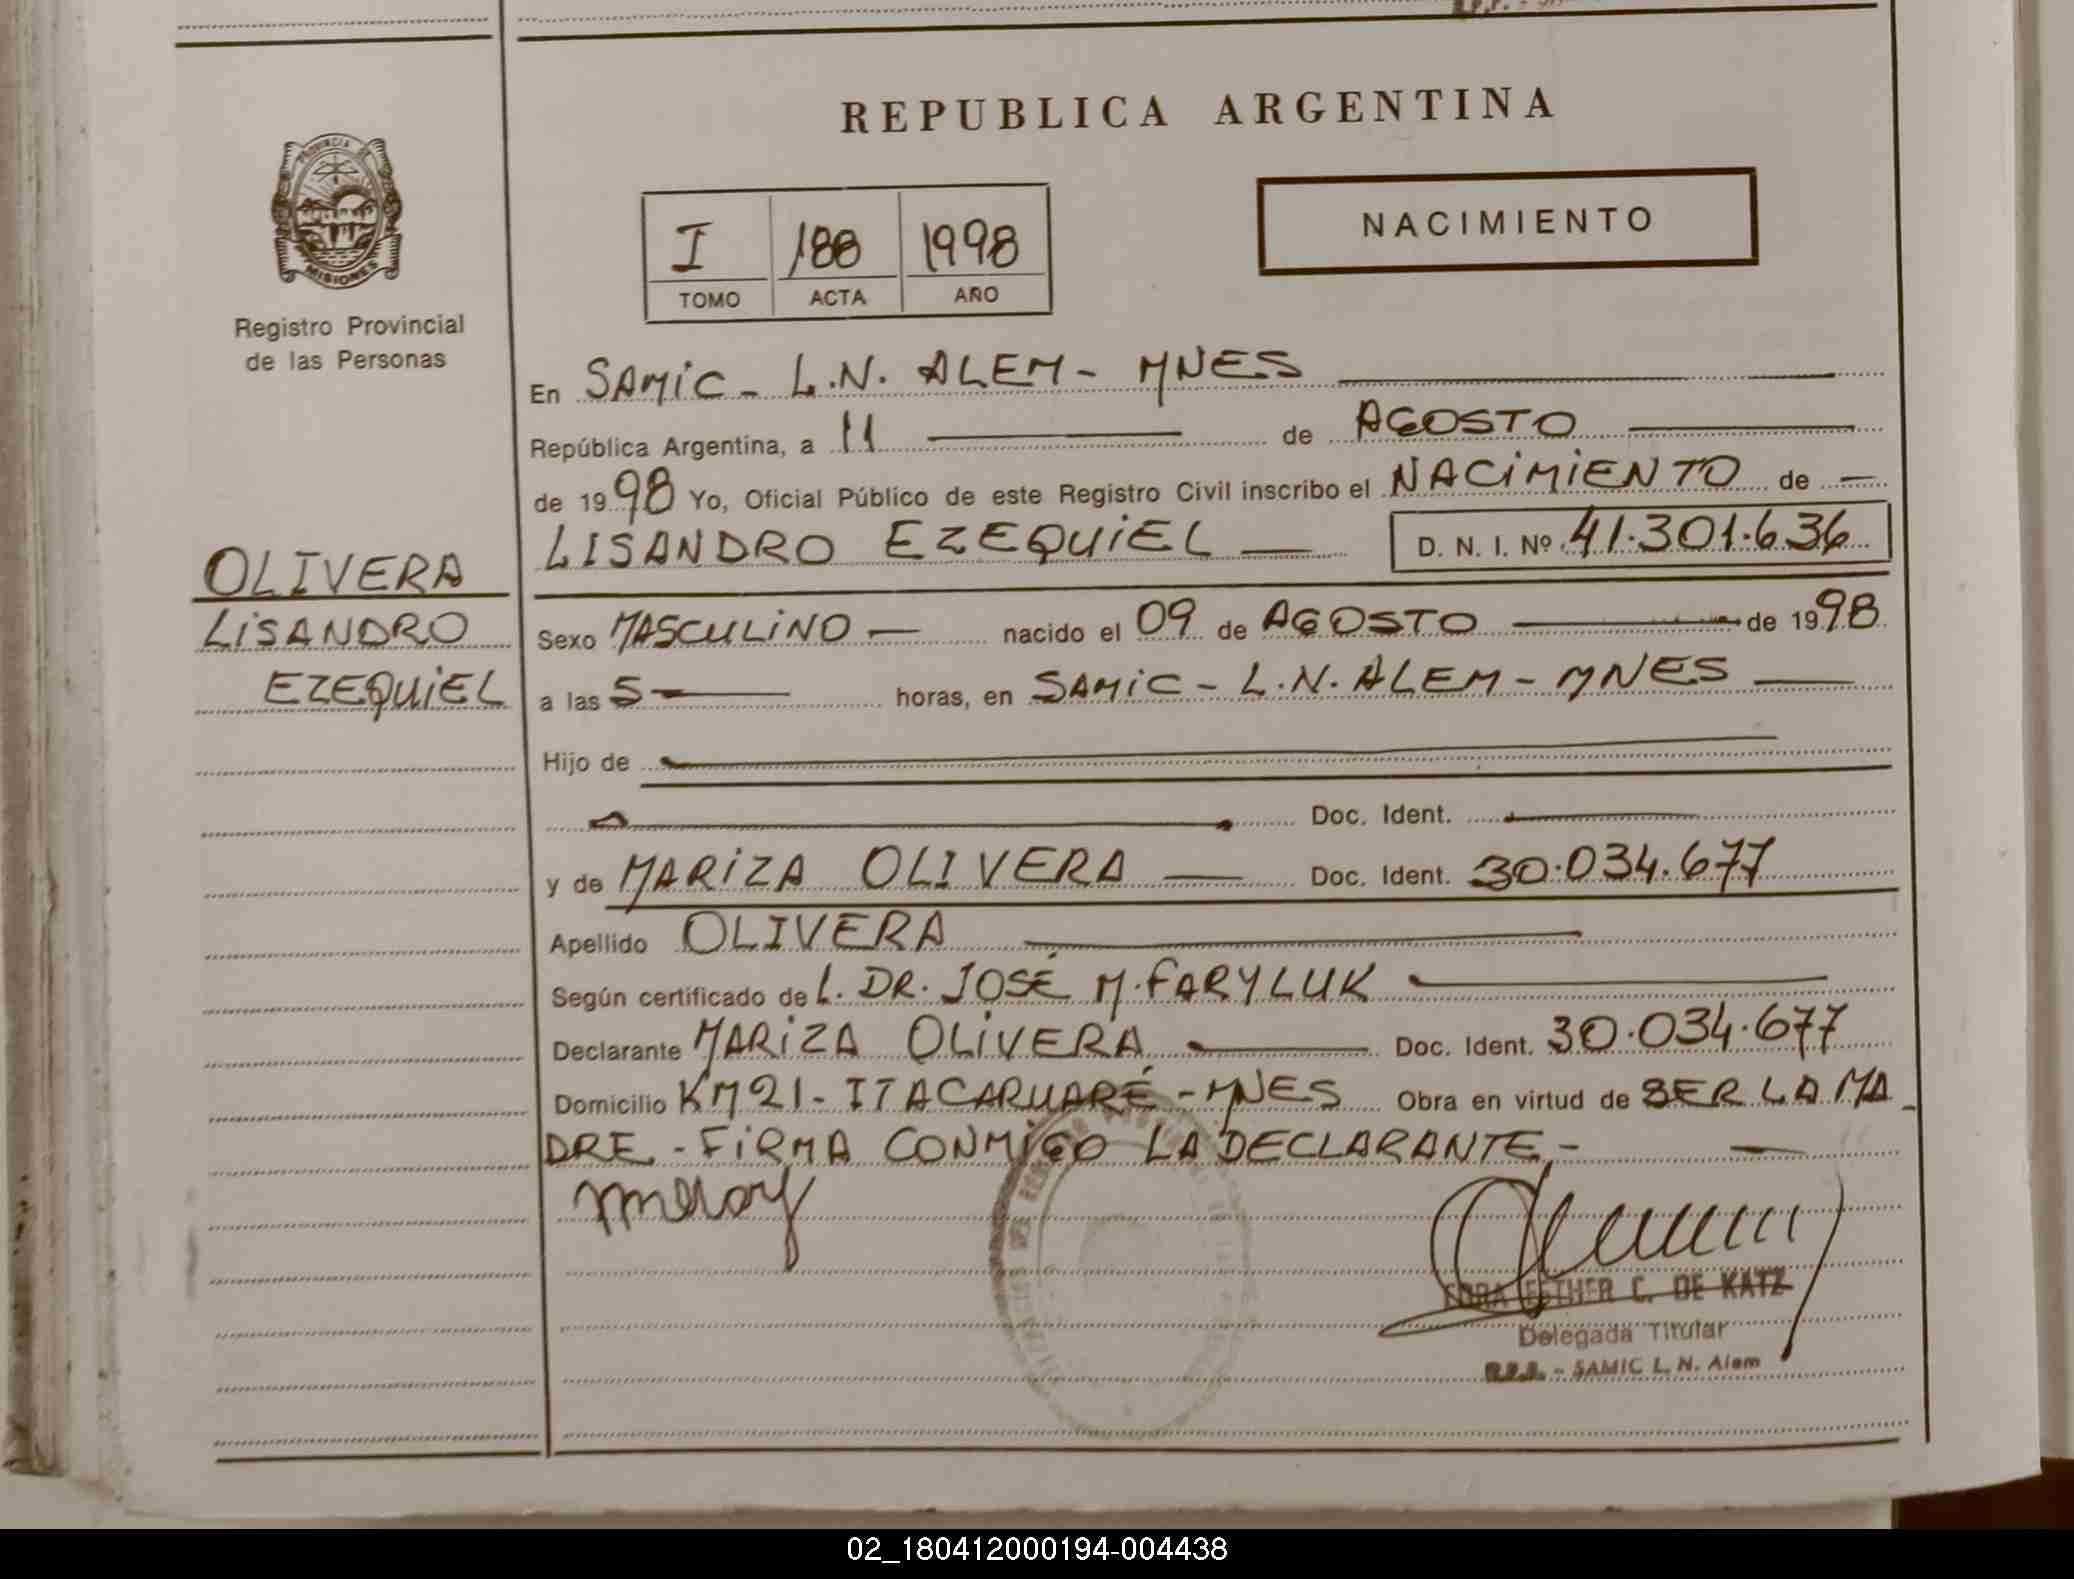 PROVINCIA DE
MISIONES
Registro Provincial
de las Personas
OLIVERA
LISANDRO
EZEQUIEL
REPUBLICA ARGENTINA
I 188 1998
TOMO ACTA AÑO
NACIMIENTO
En SAMIC - L.N. ALEM - MNES
República Argentina, a 11 de AGOSTO
de 1998 Yo, Oficial Público de este Registro Civil inscribo el NACIMIENTO de —
LISANDRO EZEQUIEL — D. N. I. Nº 41.301.636
Sexo MASCULINO — nacido el 09 de AGOSTO de 1998
a las 5 — horas, en SAMIC - L.N. ALEM - MNES —
Hijo de
Doc. Ident.
y de MARIZA OLIVERA — Doc. Ident. 30.034.677
Apellido OLIVERA
Según certificado de L. DR. JOSÉ M. FARYLUK
Declarante MARIZA OLIVERA Doc. Ident. 30.034.677
Domicilio KM 21 - ITACARUARÉ - MNES Obra en virtud de SER LA MA-
DRE - FIRMA CONMIGO LA DECLARANTE. - —
ESTHER C. DE KATZ
Delegada Titular
R.P.P. - SAMIC L. N. Alem
02_180412000194-004438